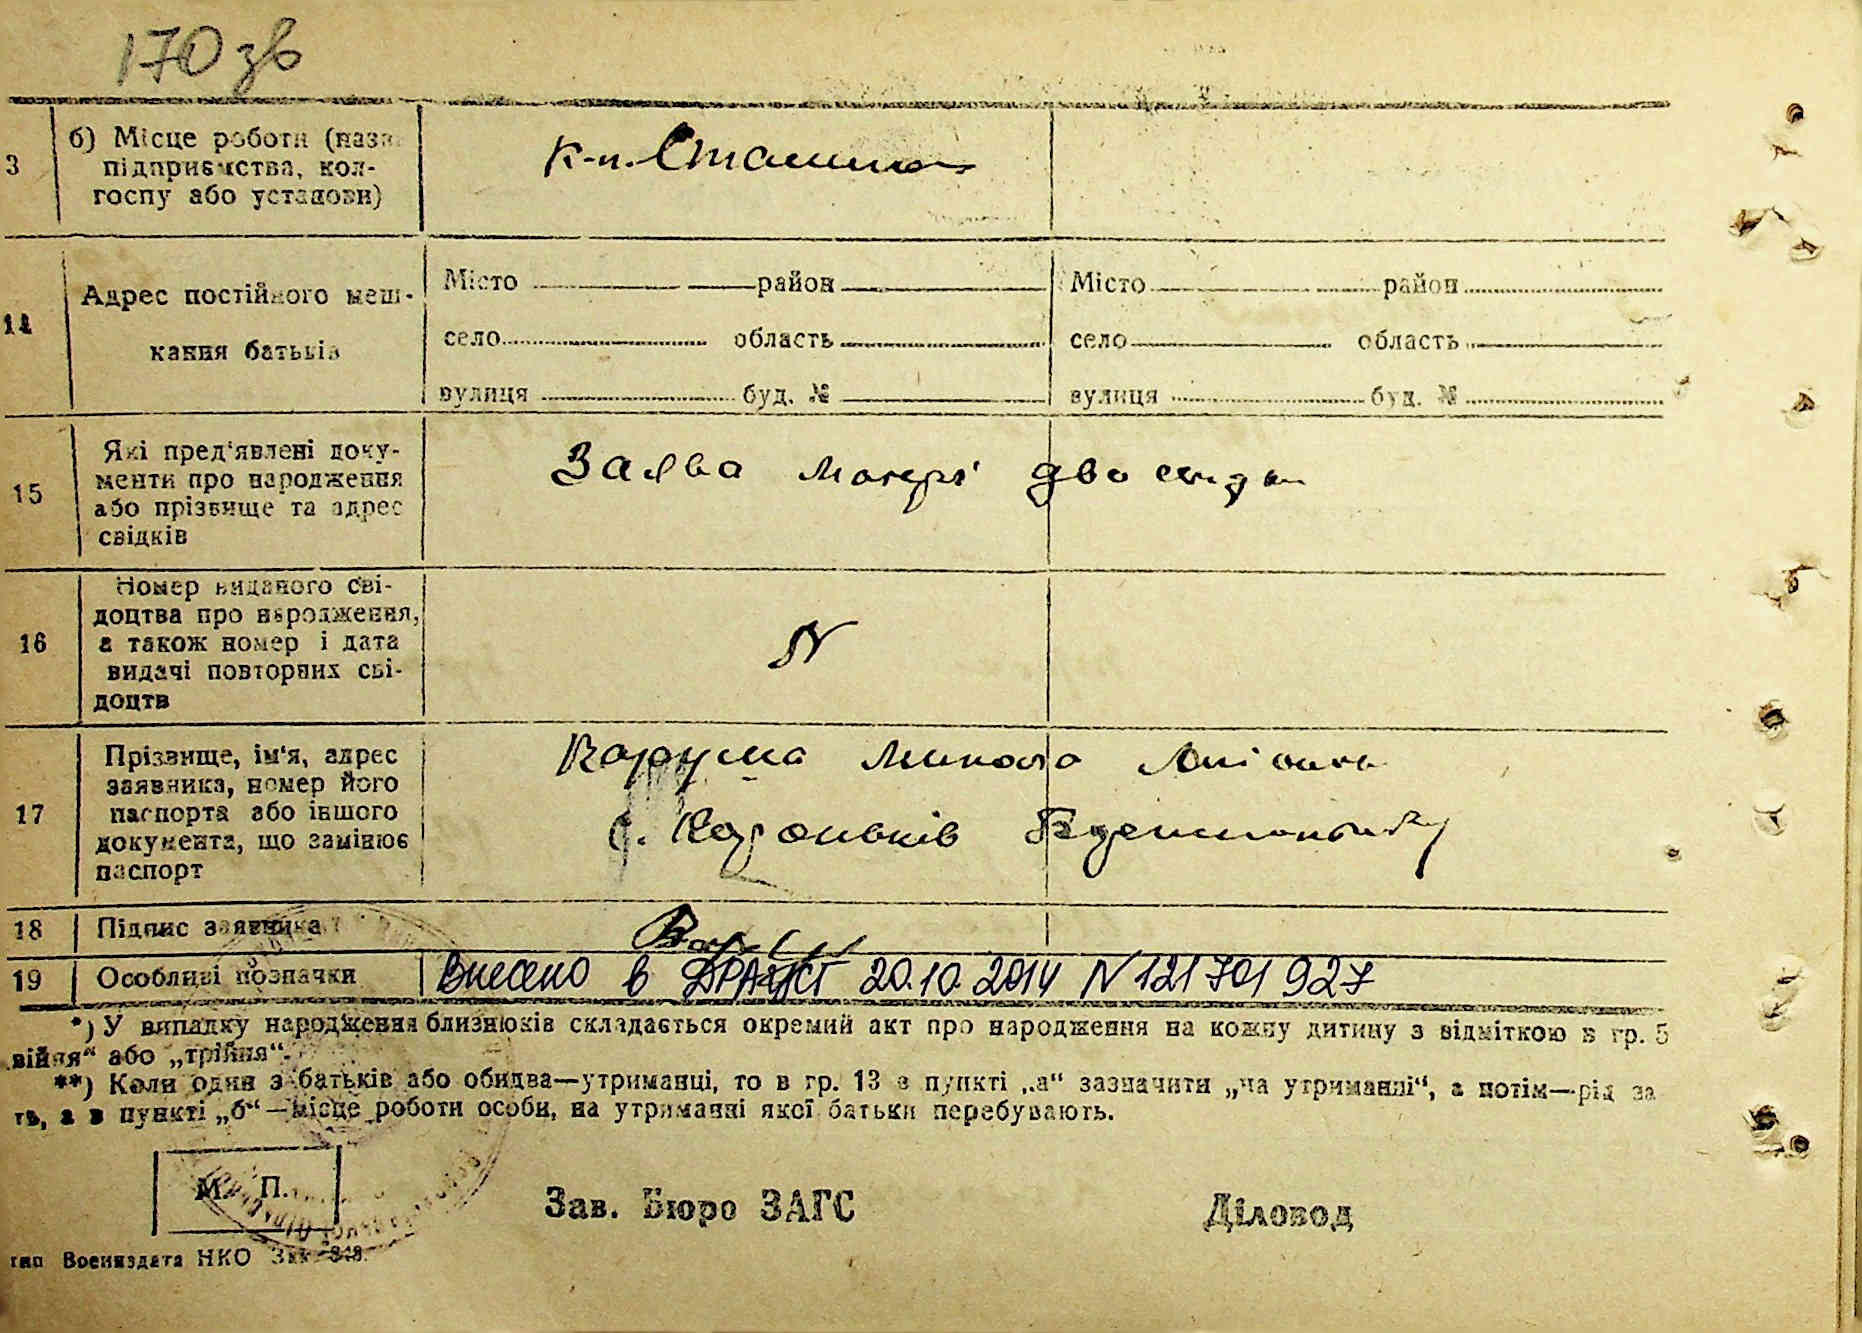 170 зв
3
б) Місце роботи (назва
підприємства, кол-
госпу або установи)
к-п. Сталіна
14
Адрес постійного меш-
кання батьків
Місто район Місто район
село область село область
вулиця буд. № вулиця буд. №
15
Які пред'явлені доку-
менти про народження
або прізвище та адрес
свідків
Заява матері два свідки
16
Номер виданого сві-
доцтва про народження,
а також номер і дата
видачі повторних сві-
доцтв
N
17
Прізвище, ім'я, адрес
заявника, номер його
паспорта або іншого
документа, що замінює
паспорт
Микола
с.
18 Підпис заявника
19 Особливі позначки
Внесено в ДРАЦСГ 20.10.2014 N 121701927
*) У випадку народження близнюків складається окремий акт про народження на кожну дитину з відміткою в гр. 5
війня" або „трійня".
**) Коли один з батьків або обидва—утриманці, то в гр. 13 в пункті „а" зазначити „на утриманні", а потім—рід за
ть, а в пункті „б"—місце роботи особи, на утриманні якої батьки перебувають.
М. П.
Зав. Бюро ЗАГС Діловод
тип Воениздата НКО Зак